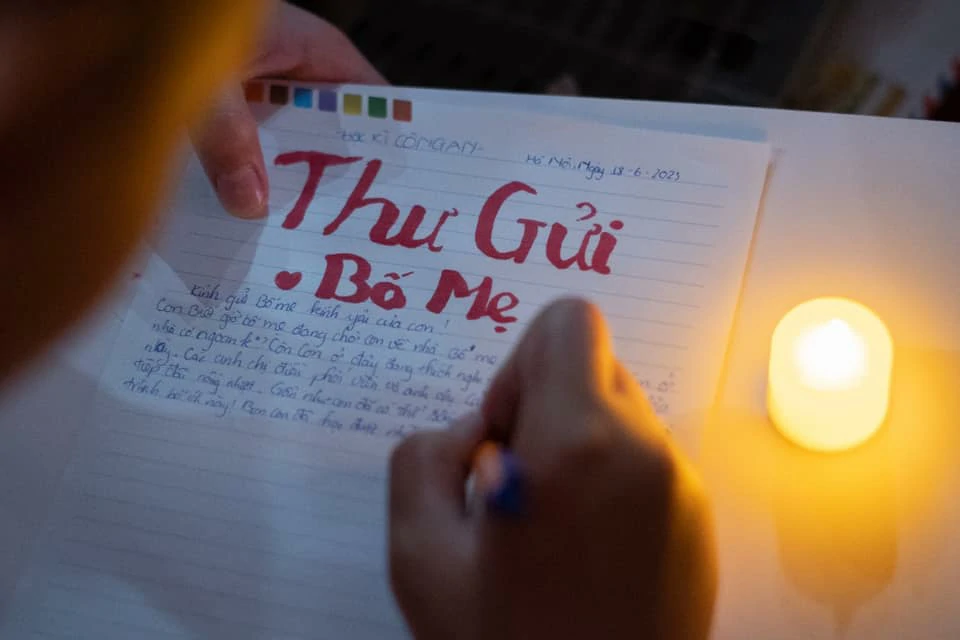 HỌC KÌ CÔNG AN
Hà Nội, Ngày 18-6-2023
Thư Gửi
Bố Mẹ
Kính gửi Bố mẹ kính yêu của con!
Con Biết giờ bố mẹ đang chờ con về nhà. Bố mẹ
nhà có ngoan k? Còn Con ở đây đang thích nghi
này. Các anh chị điều phối viên và anh
tiếp đón nồng nhiệt. Gần như con đã có thể
trình bổ ích này! Bọn con đã học được